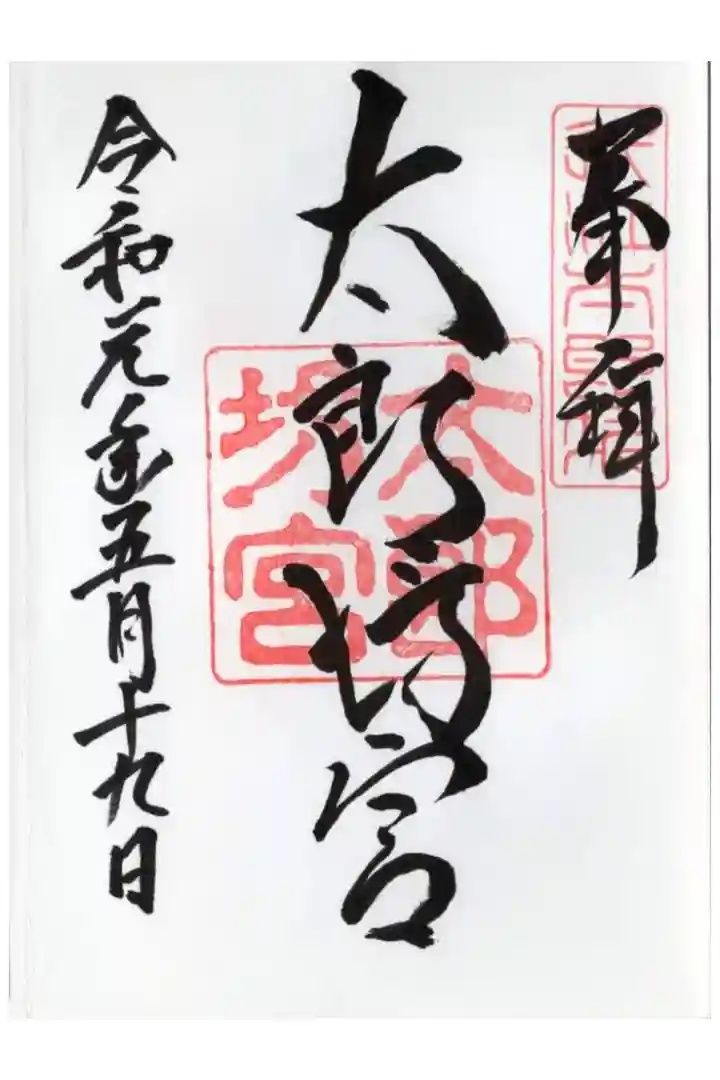 奉拝
太郎坊宮
太郎坊宮
令和元年五月十九日